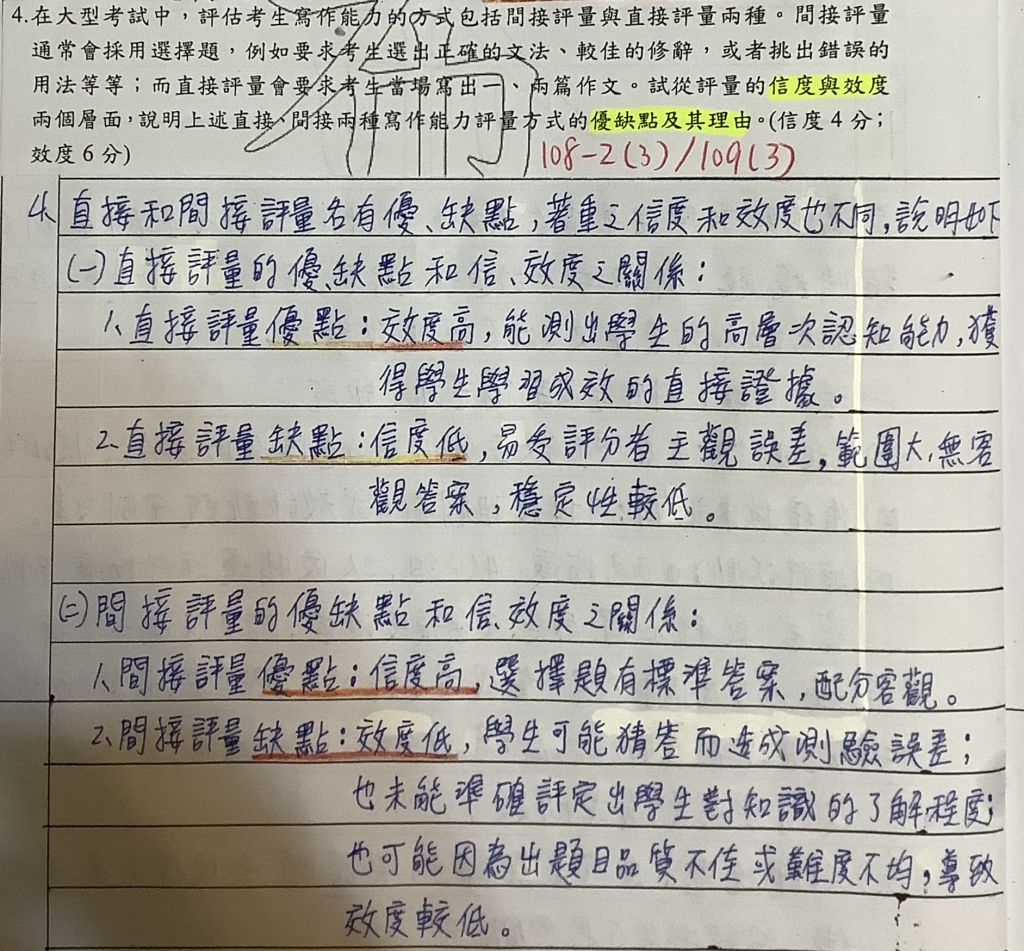 4.在大型考試中，評估考生寫作能力的方式包括間接評量與直接評量兩種。間接評量
通常會採用選擇題，例如要求考生選出正確的文法、較佳的修辭，或者挑出錯誤的
用法等等；而直接評量會要求考生當場寫出一、兩篇作文。試從評量的信度與效度
兩個層面，說明上述直接、間接兩種寫作能力評量方式的優缺點及其理由。(信度4分；
效度6分)
108-2(3)/109(3)
4、直接和間接評量各有優、缺點，著重之信度和效度也不同，說明如下
(一)直接評量的優、缺點和信、效度之關係：
1、直接評量優點：效度高，能測出學生的高層次認知能力，獲
得學生學習成效的直接證據。
2、直接評量缺點：信度低，易受評分者主觀誤差，範圍大、無客
觀答案，穩定性較低。
(二)間接評量的優缺點和信、效度之關係：
1、間接評量優點：信度高，選擇題有標準答案，配分客觀。
2、間接評量缺點：效度低，學生可能猜答而造成測驗誤差；
也未能準確評定出學生對知識的了解程度；
也可能因為出題目品質不佳或難度不均，導致
效度較低。